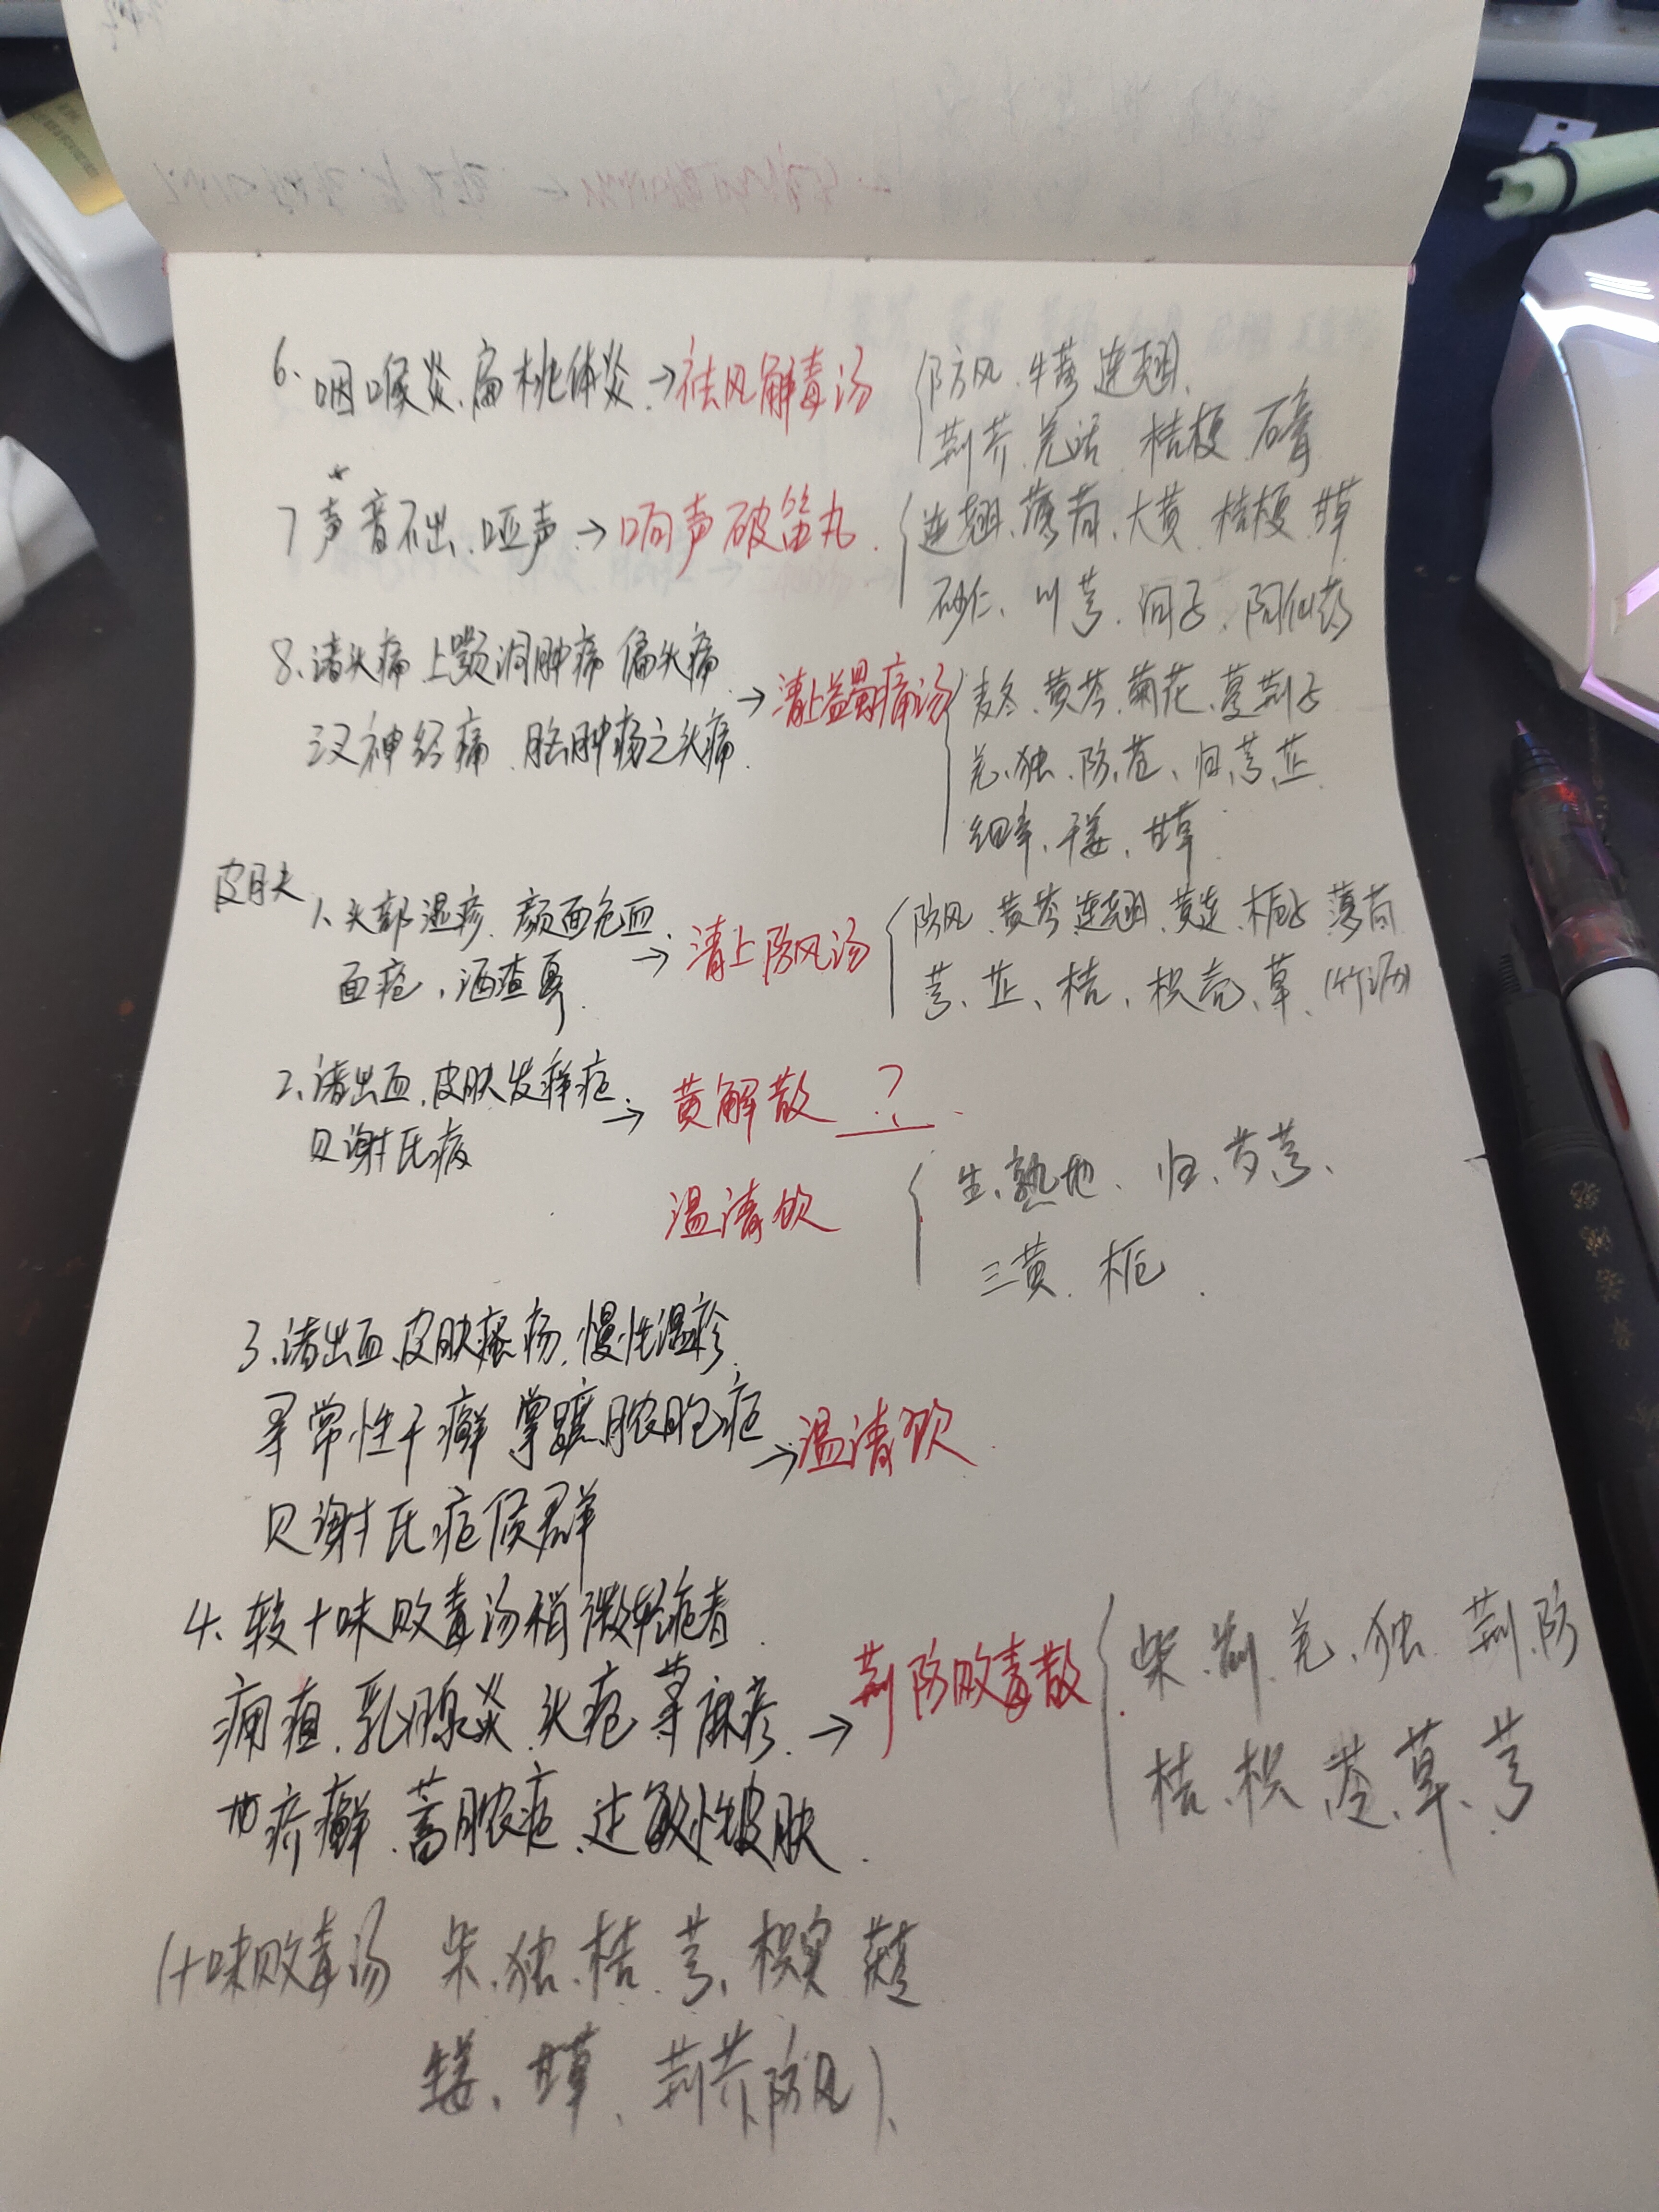 6. 咽喉炎、扁桃体炎. → 祛风解毒汤 { 防风、牛蒡 连翘.
荆芥 羌活 桔梗 石膏
7 声音不出、哑声. → 响声破笛丸. { 连翘、薄荷、大黄 桔梗 甘草
砂仁、川芎、诃子、阿仙药
8、诸头痛 上颚洞肿痛 偏头痛
三叉神经痛、脑肿疡之头痛. → 清上蠲痛汤 { 麦冬、黄芩、菊花、蔓荆子
羌、独、防、苍、归、芎、芷
细辛、干姜、甘草
皮肤 1、头部湿疹、颜面充血.
面疱、酒渣鼻. → 清上防风汤 { 防风、黄芩 连翘、黄连、栀子 薄荷
芎、芷、桔、枳壳、草、(竹沥)
2、诸出血、皮肤发痒症.
贝谢氏病 → 黄解散 ?
温清饮 { 生、熟地、归、芍、芎、
三黄、栀.
3、诸出血、皮肤瘙疡、慢性湿疹.
寻常性干癣 掌蹠脓胞症
贝谢氏症候群 → 温清饮.
4、较十味败毒汤稍微轻症者.
痈疽、乳腺炎、头疮、荨麻疹.
疥癣、蓄脓症、过敏性皮肤. → 荆防败毒散 { 柴、前、羌、独、荆、防
桔、枳、苓、草、芎
(十味败毒汤 柴、独、桔、芎、枳实
生姜、甘草、荆芥、防风).